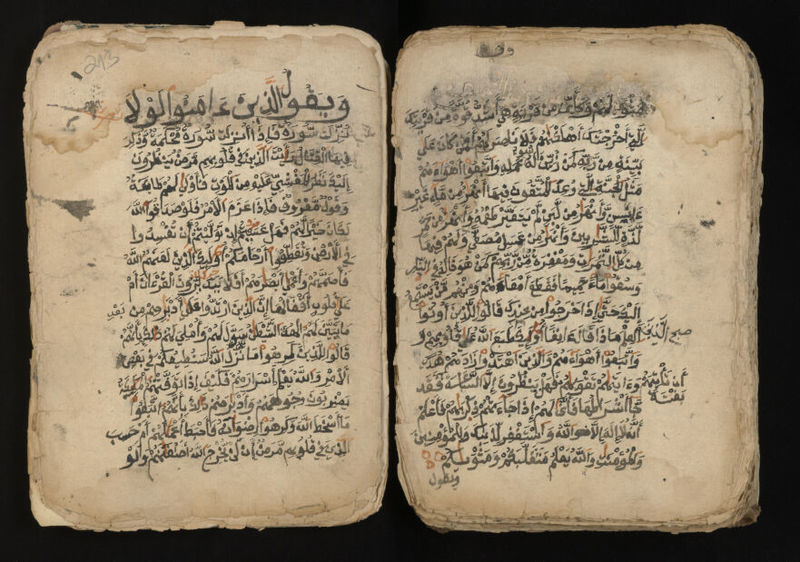 وقف
مثوى لهم وكأين من قرية هي أشد قوة من قريتك
التي أخرجتك أهلكنهم فلا ناصر لهم أفمن كان على
بينة من ربه كمن زين له سوء عمله واتبعوا أهواءهم
مثل الجنة التي وعد المتقون فيها أنهر من ماء غير
ءاسن وأنهر من لبن لم يتغير طعمه وأنهر من خمر
لذة للشربين وأنهر من عسل مصفى ولهم فيها
من كل الثمرت ومغفرة من ربهم كمن هو خلد في النار
وسقوا ماء حميما فقطع أمعاءهم ومنهم من يستمع
إليك حتى إذا خرجوا من عندك قالوا للذين أوتوا
العلم ماذا قال ءانفا أولئك طبع الله على قلوبهم و
الذين صح
واتبعوا أهواءهم والذين اهتدوا زادهم هدى
وءاتيهم تقويهم فهل ينظرون إلا الساعة فقد
أن تأتيهم بغتة
جاء أشراطها فأنى لهم إذا جاءتهم ذكريهم فاعلم
أنه لا إله إلا الله واستغفر لذنبك وللمؤمنين
والمؤمنت والله يعلم متقلبكم ومثويكم
ويقول
213
ويقول الذين ءامنوا لولا
نزلت سورة فإذا أنزلت سورة محكمة وذكر
فيها القتال رأيت الذين في قلوبهم مرض ينظرون
إليك نظر المغشي عليه من الموت فأولى لهم طاعة
وقول معروف فإذا عزم الأمر فلو صدقوا الله
لكان خيرا لهم فهل عسيتم إن توليتم أن تفسدوا
في الأرض وتقطعوا أرحامكم أولئك الذين لعنهم الله
فأصمهم وأعمى أبصرهم أفلا يتدبرون القرءان أم
على قلوب أقفالها إن الذين ارتدوا على أدبرهم من بعد
ما تبين لهم الهدى الشيطن سول لهم وأملى لهم ذلك بأنهم
قالوا للذين كرهوا ما نزل الله سنطيعكم في بعض
الأمر والله يعلم أسرارهم فكيف إذا توفتهم الملئكة
يضربون وجوههم وأدبرهم ذلك بأنهم اتبعوا
ما أسخط الله وكرهوا رضونه فأحبط أعملهم أم حسب
الذين في قلوبهم مرض أن لن يخرج الله أضغنهم ولو